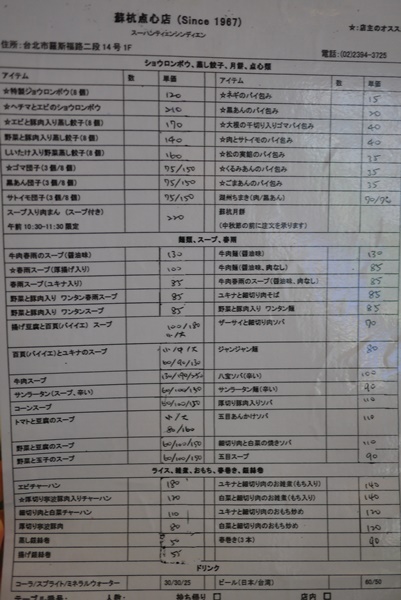 蘇杭点心店 (Since 1967)
スーハンティエンシンディエン
☆:店主のオスス
住所:台北市羅斯福路二段14号1F
電話:(02)2394-3725
ショウロンポウ、蒸し餃子、月餅、点心類
アイテム 数 単価 アイテム 数 単価
☆特製ショウロンポウ(8個) 120 ☆ネギのパイ包み 15
☆ヘチマとエビのショウロンポウ 210 ☆黒あんのパイ包み 20
☆エビと豚肉入り蒸し餃子(8個) 170 ☆大根の千切り入りゴマパイ包み 40
野菜と豚肉入り蒸し餃子(8個) 140 ☆肉とサトイモのパイ包み 40
しいたけ入り野菜蒸し餃子(8個) 160 ☆松の実餡のパイ包み 35
☆ゴマ団子(3個/8個) 75/150 ☆くるみあんのパイ包み 35
黒あん団子(3個/8個) 75/150 ☆ごまあんのパイ包み 35
サトイモ団子(3個/8個) 75/150 湖州ちまき(肉/黒あん)
スープ入り肉まん(スープ付き) 220 蘇杭月餅
午前10:30-11:30限定 (中秋節の前に注文を承ります)
麺類、スープ、春雨
牛肉春雨のスープ(醤油味) 130 牛肉麺(醤油味) 130
☆春雨のスープ(厚揚げ入り) 100 牛肉麺(醤油味、肉なし) 85
春雨のスープ(ユキナ入り) 85 牛肉春雨のスープ(醤油味、肉なし) 85
野菜と豚肉入り ワンタン春雨スープ 85 ユキナと細切り肉そば 85
野菜と豚肉入り ワンタンスープ 85 野菜と豚肉入り ワンタン麺 85
揚げ豆腐と百頁(パイイエ) スープ 100/180 ザーサイと細切り肉ソバ 90
百頁(パイイエ)とユキナのスープ 60/90/130 ジャンジャン麺 80
牛肉スープ 八宝ソバ(辛い) 100
サンラータン(スープ、辛い) 60/100/150 サンラータン麺(辛い) 90
コーンスープ 60/100/150 厚切り豚肉入りソバ 110
トマトと豆腐のスープ 80/160 五目あんかけソバ 110
野菜と豆腐のスープ 60/100/150 細切り肉と白菜の焼きソバ 110
野菜と玉子のスープ 60/100/150 五目スープ 90
ライス、雑煮、おもち、春巻き、銀絲巻
エビチャーハン 180 ユキナと細切り肉のお雑煮(もち入り) 140
☆厚切り寧波豚肉入りチャーハン 120 白菜と細切り肉のお雑煮(もち入り) 140
細切り肉と白菜チャーハン 110 ユキナと細切り肉のおもち炒め 120
厚切り寧波豚肉 80 白菜と細切り肉のおもち炒め 120
蒸し銀絲巻 50 春巻き(2本) 90
揚げ銀絲巻 55
ドリンク
コーラ/スプライト/ミネラルウォーター 30/30/25 ビール(日本/台湾) 80/80
テーブル番号: 人数: 持ち帰り □ 店内 □